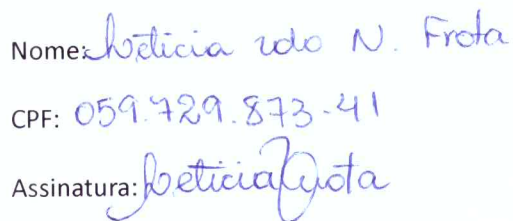 Nome: Leticia do N. Frota
CPF: 059.729.873-41
Assinatura: Leticia Frota